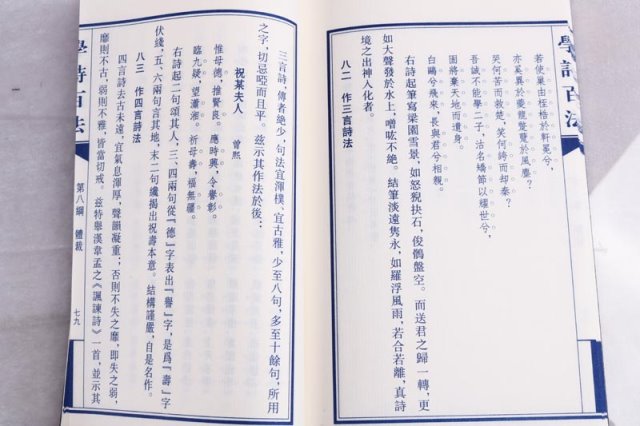 學詩百法
若使巢由桎梏於軒冕兮，
亦奚異於夔龍蹩躠於風塵？
哭何苦而救楚，笑何誇而却秦？
吾誠不能學二子，沽名矯節以耀世兮，
固將棄天地而遺身。
白鷗兮飛來，長與君兮相親。
右詩起筆寫梁園雪景，如怒猊抉石，俊鶻盤空。而送君之歸一轉，更
如大聲發於水上，噌吰不絕。結筆淡遠雋永，如羅浮風雨，若合若離，真詩
境之出神入化者。
八二 作三言詩法
三言詩，傳者絶少，句法宜渾樸、宜古雅，少至八句，多至十餘句，所用
之字，切忌啞而且平。兹示其作法於後：
祝某夫人 曾熙
惟母德，推賢良。應時興，令譽彰。
臨九疑，望瀟湘。祈母壽，福無疆。
右詩起二句頌其人，三、四兩句從『德』字表出『譽』字，是爲『壽』字
伏綫，五、六兩句言其地，末二句纔揭出祝壽本意。結構謹嚴，自是名作。
八三 作四言詩法
四言詩去古未遠，宜氣息渾厚，聲韻凝重；否則不失之靡，即失之弱，
靡則不古，弱則不雅，皆當切戒。兹特舉漢韋孟之《諷諫詩》一首，並示其
學詩百法
第八綱 體裁
七九